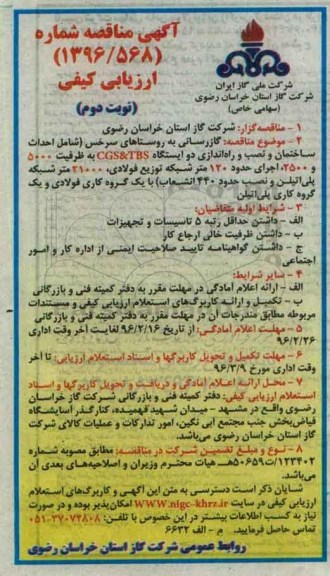 آگهی مناقصه شماره
(۱۳۹۶/۵۶۸)
ارزیابی کیفی
(نوبت دوم)
شرکت ملی گاز ایران
شرکت گاز استان خراسان رضوی
(سهامی خاص)
۱ - مناقصه‌گزار: شرکت گاز استان خراسان رضوی
۲ - موضوع مناقصه: گازرسانی به روستاهای سرخس (شامل احداث
ساختمان و نصب و راه‌اندازی دو ایستگاه CGS&TBS به ظرفیت ۵۰۰۰
و ۲۵۰۰، اجرای حدود ۱۲۰ متر شبکه توزیع فولادی، ۲۱۰۰۰ متر شبکه
پلی‌اتیلن و نصب حدود ۴۴۰ انشعاب) با یک گروه کاری فولادی و یک
گروه کاری پلی‌اتیلن
۳ - شرایط اولیه متقاضیان:
الف - داشتن حداقل رتبه ۵ تاسیسات و تجهیزات
ب - داشتن ظرفیت خالی ارجاع کار
ج - داشتن گواهینامه تایید صلاحیت ایمنی از اداره کار و امور
اجتماعی
۴ - سایر شرایط:
الف - ارائه اعلام آمادگی در مهلت مقرر به دفتر کمیته فنی و بازرگانی
ب - تکمیل و ارائه کاربرگ‌های استعلام ارزیابی کیفی و مستندات
مربوطه مطابق مندرجات آن در مهلت مقرر به دفتر کمیته فنی و بازرگانی
۵ - مهلت اعلام آمادگی: از تاریخ ۹۶/۲/۱۶ لغایت آخر وقت اداری
۹۶/۲/۲۶
۶ - مهلت تکمیل و تحویل کاربرگها و اسناد استعلام ارزیابی: تا آخر
وقت اداری مورخ ۹۶/۳/۹
۷ - محل ارائه اعلام آمادگی و دریافت و تحویل کاربرگها و اسناد
استعلام ارزیابی کیفی: دفتر کمیته فنی و بازرگانی شرکت گاز خراسان
رضوی واقع در مشهد - میدان شهید فهمیده، کنارگذر آسایشگاه
فیاض‌بخش جنب مجتمع آبی نگین، امور تدارکات و عملیات کالای شرکت
گاز استان خراسان رضوی می‌باشد.
۸ - نوع و مبلغ تضمین شرکت در مناقصه: مطابق مصوبه شماره
۱۲۳۴۰۲/ت۵۰۶۵۹هـ هیات محترم وزیران و اصلاحیه‌های بعدی آن
می‌باشد.
شایان ذکر است دسترسی به متن این آگهی و کاربرگ‌های استعلام
ارزیابی کیفی در سایت WWW.nigc-khrz.ir امکان‌پذیر بوده و در صورت
نیاز به کسب اطلاعات بیشتر در این خصوص با تلفن: ۳۷۰۷۲۸۰۸-۰۵۱
تماس حاصل فرمایید. م - الف ۶۶۳۲
روابط عمومی شرکت گاز استان خراسان رضوی